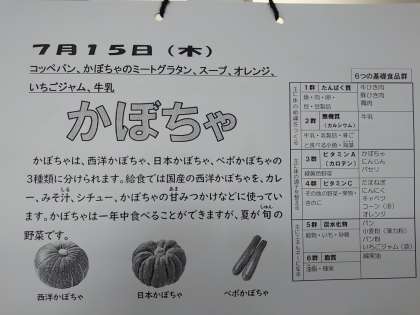 7月15日(木)
コッペパン、かぼちゃのミートグラタン、スープ、オレンジ、
いちごジャム、牛乳
かぼちゃ
かぼちゃは、西洋かぼちゃ、日本かぼちゃ、ペポかぼちゃの
3種類に分けられます。給食では国産の西洋かぼちゃを、カレ
ー、みそ汁、シチュー、かぼちゃの甘みつかけなどに使ってい
ます。かぼちゃは一年中食べることができますが、夏が旬の
野菜です。
しる
あま
しゅん
西洋かぼちゃ
日本かぼちゃ
ペポかぼちゃ
6つの基礎食品群
1群 たんぱく質
魚・肉・卵・
豆・豆製品
牛ひき肉
豚ひき肉
鶏肉
2群 無機質
(カルシウム)
牛乳・乳製品・骨ご
と食べる小魚・海藻
牛乳
3群 ビタミンA
(カロテン)
緑黄色野菜
かぼちゃ
にんじん
パセリ
4群 ビタミンC
その他の野菜・果物・
きのこ
たまねぎ
にんにく
キャベツ
コーン(冷)
オレンジ
5群 炭水化物
穀物・いも・砂糖
パン
小麦粉(薄力粉)
パン粉
いちごジャム(袋)
6群 脂質
油脂・種実
綿実油